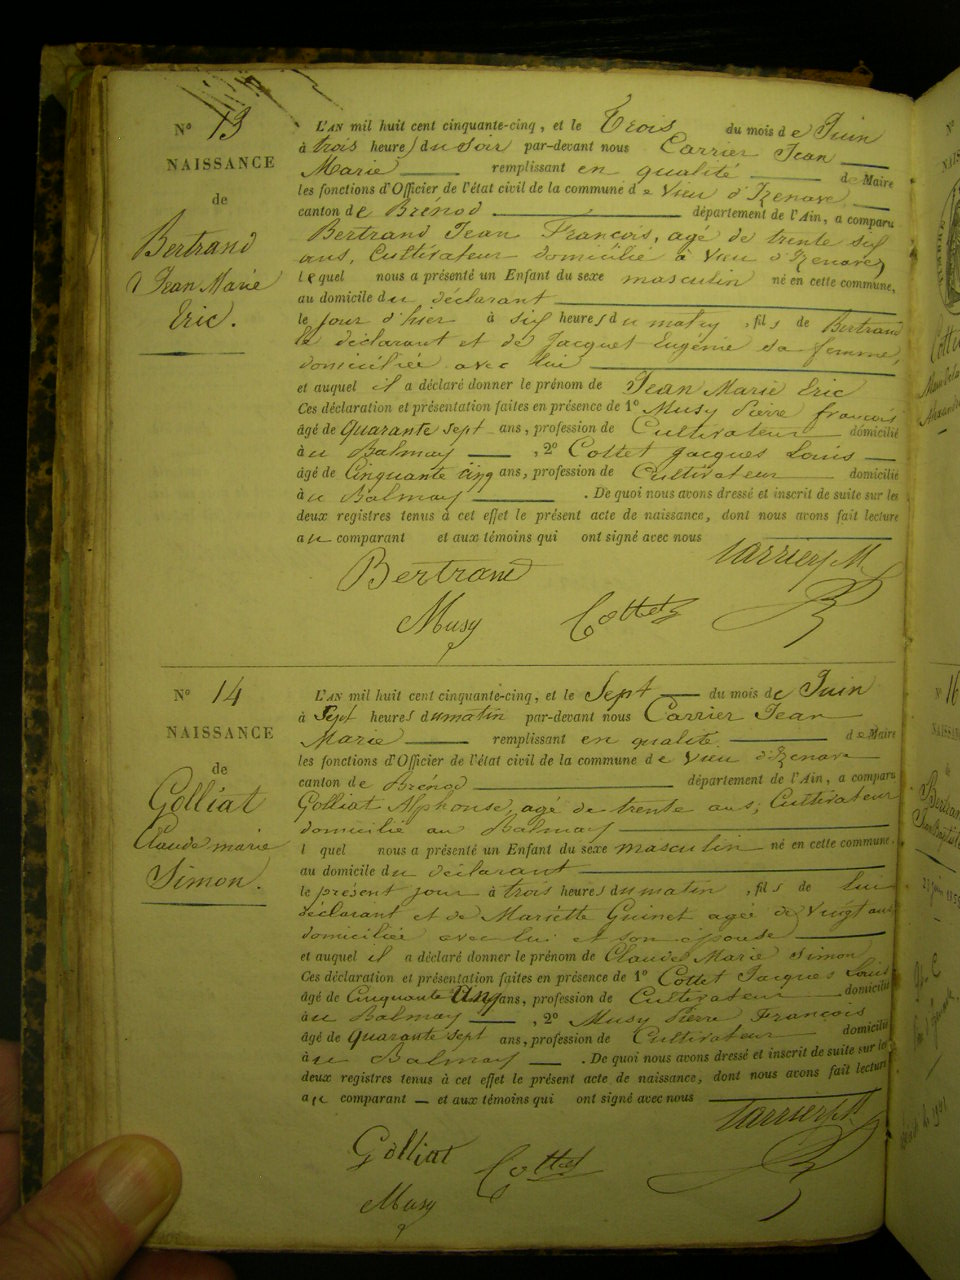 N° 13
NAISSANCE
de
Bertrand
Jean Marie
Eric.
L'AN mil huit cent cinquante-cinq, et le Trois du mois de Juin
à trois heures du soir par-devant nous Carrier Jean
Marie remplissant en qualité de Maire
les fonctions d'Officier de l'état civil de la commune de Vieu d'Izenave
canton de Brénod département de l'Ain, a comparu
Bertrand Jean François, agé de trente six
ans, Cultivateur domicilié à Vieu d'Izenave
lequel nous a présenté un Enfant du sexe masculin né en cette commune,
au domicile du déclarant
le jour d'hier à six heures du matin, fils de Bertrand
le déclarant et de Jacquet Eugénie sa femme,
domiciliée avec lui
et auquel il a déclaré donner le prénom de Jean Marie Eric
Ces déclaration et présentation faites en présence de 1° Musy Pierre françois
âgé de Quarante sept ans, profession de Cultivateur domicilié
au Balmay, 2° Cottet Jacques Louis
âgé de Cinquante cinq ans, profession de Cultivateur domicilié
au Balmay. De quoi nous avons dressé et inscrit de suite sur les
deux registres tenus à cet effet le présent acte de naissance, dont nous avons fait lecture
au comparant et aux témoins qui ont signé avec nous
Bertrand Carrier J M
Musy Cottet
N° 14
NAISSANCE
de
Golliat
Claude marie
Simon.
L'AN mil huit cent cinquante-cinq, et le Sept du mois de Juin
à Sept heures du matin par-devant nous Carrier Jean
Marie remplissant en qualité de Maire
les fonctions d'Officier de l'état civil de la commune de Vieu d'Izenave
canton de Brénod département de l'Ain, a comparu
Golliat Alphonse, agé de trente ans, Cultivateur
domicilié au Balmay
l quel nous a présenté un Enfant du sexe masculin né en cette commune.
au domicile du déclarant
le présent jour à trois heures du matin, fils de lui
déclarant et de Mariette Guinet agée de vingt ans
domiciliée avec lui et son épouse
et auquel il a déclaré donner le prénom de Claude Marie Simon
Ces déclaration et présentation faites en présence de 1° Cottet Jacques Louis
âgé de Cinquante Cinq ans, profession de Cultivateur domicilié
au Balmay, 2° Musy Pierre François
âgé de Quarante sept ans, profession de Cultivateur domicilié
au Balmay. De quoi nous avons dressé et inscrit de suite sur les
deux registres tenus à cet effet le présent acte de naissance, dont nous avons fait lecture
au comparant et aux témoins qui ont signé avec nous
Carrier J M
Golliat Cottet
Musy